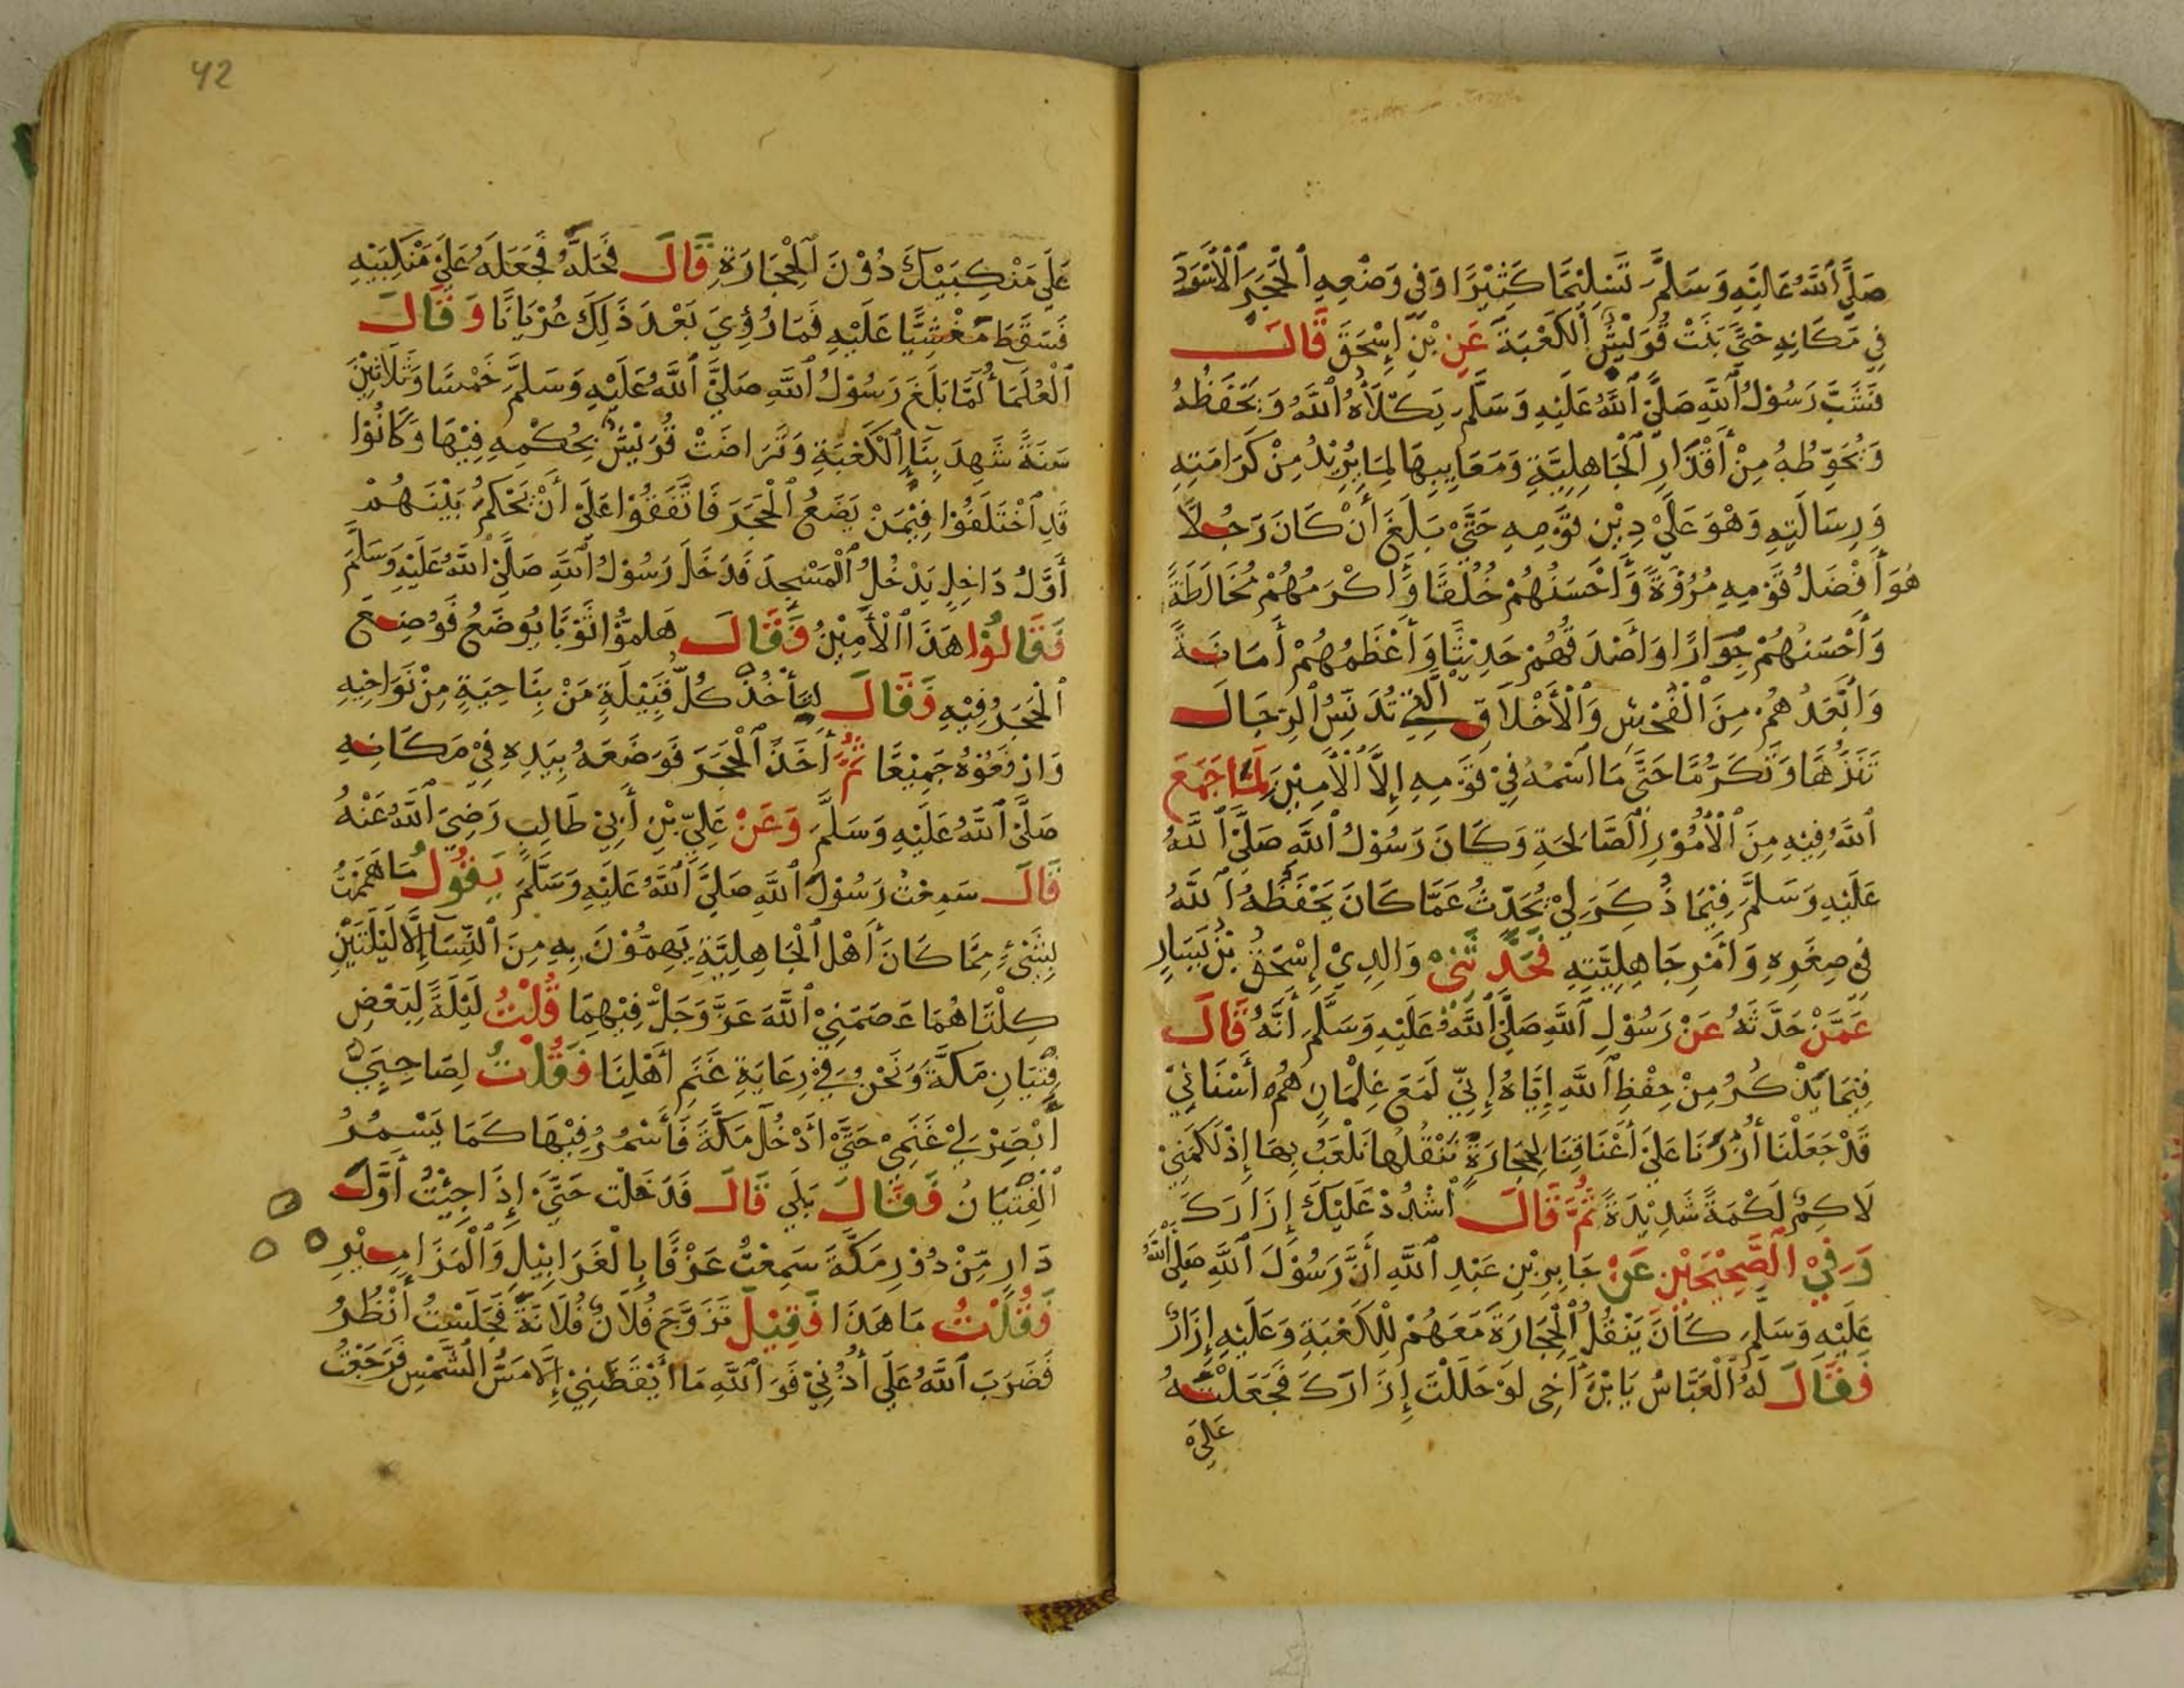 صَلَّى ٱللَّهُ عَلَيْهِ وَسَلَّمَ تَسْلِيْمًا كَثِيْرًا وَفِي وَضْعِهِ ٱلْحَجَرَ ٱلْأَسْوَدَ
فِي مَكَانِهِ حَتَّى بَنَتْ قُرَيْشٌ ٱلْكَعْبَةَ عَنِ بْنِ إِسْحَقَ قَالَ
فَشَبَّ رَسُوْلُ ٱللَّهِ صَلَّىْ ٱللَّهُ عَلَيْهِ وَسَلَّمَ يَكْلَأُهُ ٱللَّهُ وَيَحْفَظُهُ
وَيُحَوِّطُهُ مِنْ أَقْذَارِ ٱلْجَاهِلِيَّةِ وَمَعَايِبِهَا لِمَا يُرِيْدُ مِنْ كَرَامَتِهِ
وَرِسَالَتِهِ وَهْوَ عَلَىْ دِيْنِ قَوْمِهِ حَتَّىْ بَلَغَ أَنْ كَانَ رَجُلًا
هُوَ أَفْضَلُ قَوْمِهِ مُرُوَّةً وَأَحْسَنُهُمْ خُلُقًا وَأَكْرَمُهُمْ مُخَالَطَةً
وَأَحْسَنُهُمْ جِوَارًا وَأَصْدَقُهُمْ حَدِيْثًا وَأَعْظَمُهُمْ أَمَانَةً
وَأَبْعَدُهُمْ مِنَ ٱلْفُحْشِ وَٱلْأَخْلَاقِ ٱلَّتِيْ تُدَنِّسُ ٱلرِّجَالَ
تَنَزُّهًا وَتَكَرُّمًا حَتَّى مَا ٱسْمُهُ فِيْ قَوْمِهِ إِلَّا ٱلْأَمِيْنَ لَمَّا جَمَعَ
ٱللَّهُ فِيْهِ مِنَ ٱلْأُمُوْرِ ٱلصَّالِحَةِ وَكَانَ رَسُوْلُ ٱللَّهِ صَلَّىْ ٱللَّهُ
عَلَيْهِ وَسَلَّمَ فِيْمَا ذُكِرَ لِيْ يُحَدِّثُ عَمَّا كَانَ يَحْفَظُهُ ٱللَّهُ
فِي صِغَرِهِ وَأَمْرِ جَاهِلِيَّتِهِ فَحَدَّثَنِيْ وَالِدِيْ إِسْحَقُ بْنُ يَسَارِ
عَمَّنْ حَدَّثَهُ عَنْ رَسُوْلِ ٱللَّهِ صَلَّىْ ٱللَّهُ عَلَيْهِ وَسَلَّمَ أَنَّهُ قَالَ
فِيْمَا يَذْكُرُ مِنْ حِفْظِ ٱللَّهِ إِيَّاهُ إِنِّيْ لَمَعَ غِلْمَانٍ هُمْ أَسْنَانِيْ
قَدْ جَعَلْنَا أُزُرَنَا عَلَىْ أَعْنَاقِنَا لِحِجَارَةٍ نَنْقُلُهَا نَلْعَبُ بِهَا إِذْ لَكَمَنِيْ
لَاكِمٌ لَكْمَةً شَدِيْدَةً ثُمَّ قَالَ ٱشْدُدْ عَلَيْكَ إِزَارَكَ
وَفِيْ ٱلصَّحِيْحَيْنِ عَنْ جَابِرِ بْنِ عَبْدِ ٱللَّهِ أَنَّ رَسُوْلَ ٱللَّهِ صَلَّى ٱللَّهُ
عَلَيْهِ وَسَلَّمَ كَانَ يَنْقُلُ ٱلْحِجَارَةَ مَعَهُمْ لِلْكَعْبَةِ وَعَلَيْهِ إِزَارٌ
فَقَالَ لَهُ ٱلْعَبَّاسُ يَا بْنَ أَخِي لَوْ حَلَلْتَ إِزَارَكَ فَجَعَلْتَهُ
عَلَىْ
42
عَلَى مَنْكِبَيْكَ دُوْنَ ٱلْحِجَارَةِ قَالَ فَحَلَّهُ فَجَعَلَهُ عَلَىْ مَنْكِبَيْهِ
فَسَقَطَ مَغْشِيًّا عَلَيْهِ فَمَا رُؤِيَ بَعْدَ ذَلِكَ عُرْيَانًا وَقَالَ
ٱلْعُلَمَاُ لَمَّا بَلَغَ رَسُوْلُ ٱللَّهِ صَلَّىْ ٱللَّهُ عَلَيْهِ وَسَلَّمَ خَمْسًا وَثَلَاثِيْنَ
سَنَةً شَهِدَ بِنَاءَ ٱلْكَعْبَةِ وَتَرَاضَتْ قُرَيْشٌ بِحُكْمِهِ فِيْهَا وَكَانُوْا
قَدِ ٱخْتَلَفُوْا فِيْمَنْ يَضَعُ ٱلْحَجَرَ فَاتَّفَقُوْا عَلَىْ أَنْ يَحْكُمَ بَيْنَهُمْ
أَوَّلُ دَاخِلٍ يَدْخُلُ ٱلْمَسْجِدَ فَدَخَلَ رَسُوْلُ ٱللَّهِ صَلَّىْ ٱللَّهُ عَلَيْهِ وَسَلَّمَ
فَقَالُوْا هَذَا ٱلْأَمِيْنُ فَقَالَ هَلمُّوْا ثَوْبًا يُوضَعُ فَوُضِعَ
ٱلْحَجَرُ فِيْهِ فَقَالَ لِيَأْخُذْ كُلُّ قَبِيْلَةٍ مَنْ بِنَاحِيَةٍ مِنْ نَوَاحِيْهِ
وَارْفَعُوْهُ جَمِيْعًا ثُمَّ أَخَذَ ٱلْحَجَرَ فَوَضَعَهُ بِيَدِهِ فِيْ مَكَانِهِ
صَلَّىْ ٱللَّهُ عَلَيْهِ وَسَلَّمَ وَعَنْ عَلِيِّ بْنِ أَبِيْ طَالِبٍ رَضِيَ ٱللَّهُ عَنْهُ
قَالَ سَمِعْتُ رَسُوْلَ ٱللَّهِ صَلَّىْ ٱللَّهُ عَلَيْهِ وَسَلَّمَ يَقُوْلُ مَا هَمَمْتُ
بِشَيْءٍ مِمَّا كَانَ أَهْلُ ٱلْجَاهِلِيَّةِ يَهِمُّوْنَ بِهِ مِنَ ٱلنِّسَآءِ إِلَّا لَيْلَتَيْنِ
كِلْتَاهُمَا عَصَمَنِيْ ٱللَّهَ عَزَّ وَجَلَّ فِيْهِمَا قُلْتُ لَيْلَةً لِبَعْضِ
فِتْيَانِ مَكَّةَ وَنَحْنُ فِيْ رِعَايَةِ غَنَمِ أَهْلِنَا فَقُلْتُ لِصَاحِبِيْ
أَبْصِرْ لِيْ غَنَمِيْ حَتَّىْ أَدْخُلَ مَكَّةَ فَأَسْمُرُ فِيْهَا كَمَا يَسْمُرُ
ٱلْفِتْيَانُ فَقَالَ بَلَى قَالَ فَدَخَلْت حَتَّىْ إِذَا جِئْتُ أَوَّلَ
دَارٍ مِّنْ دُوْرِ مَكَّةَ سَمِعْتُ عَزْفًا بِالْغَرَابِيْلِ وَٱلْمَزَامِيْرِ
فَقُلْتُ مَا هَذَا فَقِيْلَ تَزَوَّجَ فُلَانٌ فُلَانَةً فَجَلَسْتُ أَنْظُرُ
فَضَرَبَ ٱللَّهُ عَلَى أُذُنِيْ فَوَٱللَّهِ مَا أَيْقَظَنِيْ إِلَّا مَسُّ ٱلشَّمْسِ فَرَجَعْتُ